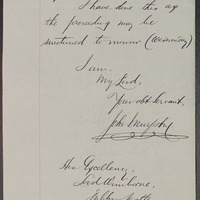 I have done this as
the proceeding may be
mentioned to morrow (Wednesday)
I am.
My Lord,
Your obt Servant,
John Murphy
His Excellency,
Lord Wimborne,